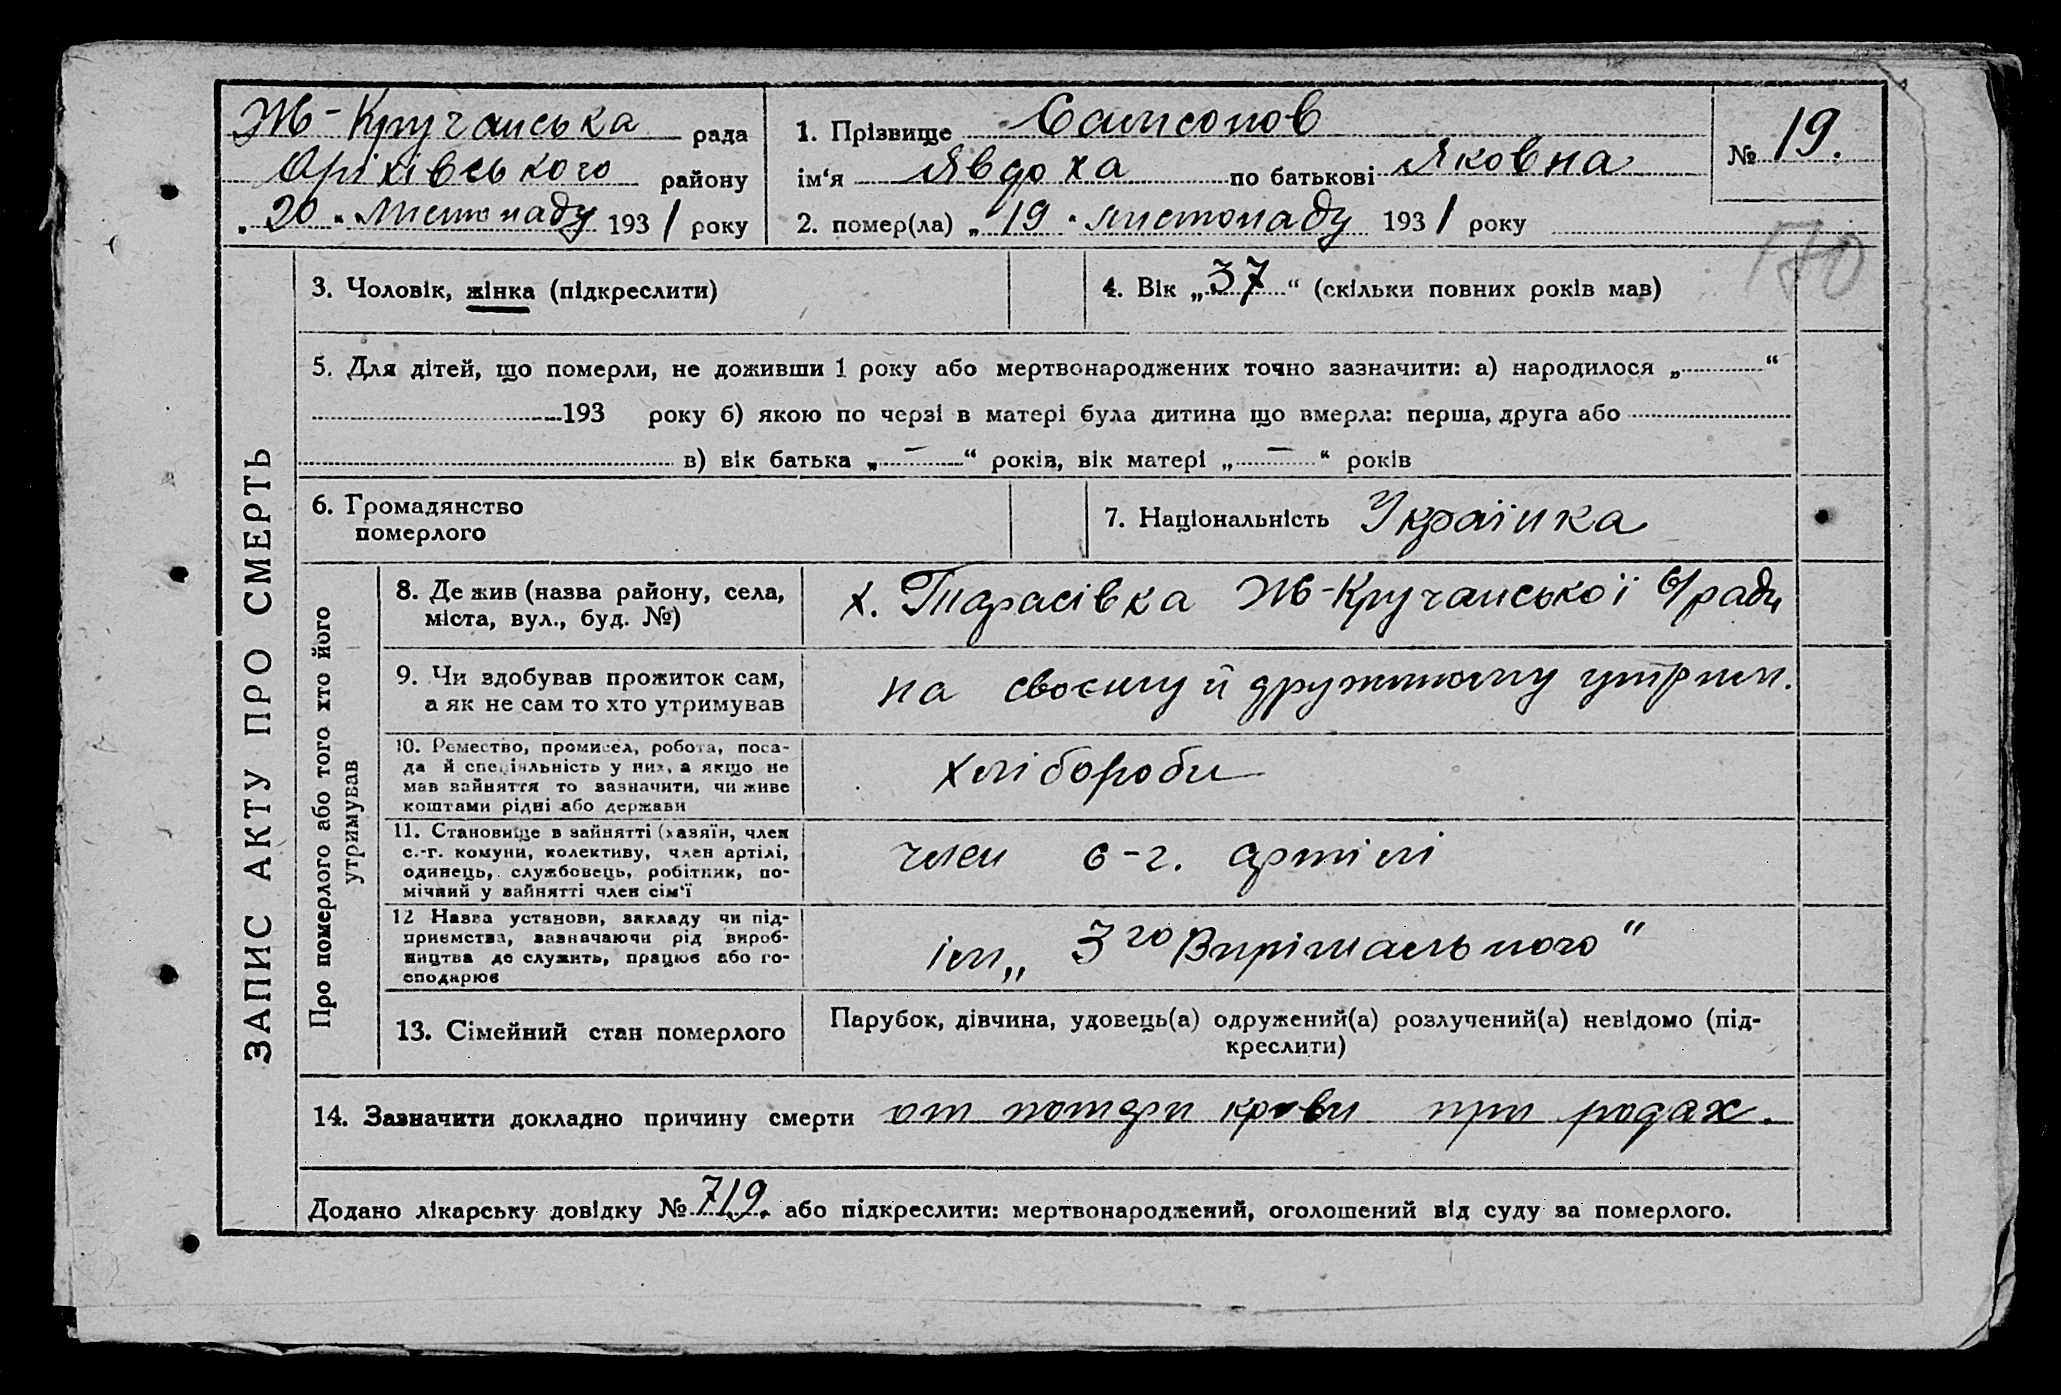 Ж-Кручанська рада
Оріхівського району
„20“ Листопаду 1931 року
1. Прізвище Самсонов
ім‘я Явдоха по батькові Яковна
2. помер(ла) „19“ листопаду 1931 року
№ 19.
170
3. Чоловік, жінка (підкреслити)
4. Вік „37“ (скільки повних років мав)
5. Для дітей, що померли, не доживши 1 року або мертвонароджених точно зазначити: а) народилося „ “
193 року б) якою по черзі в матері була дитина що вмерла: перша, друга або
в) вік батька „—“ років, вік матері „—“ років
6. Громадянство
померлого
7. Національність Українка
ЗАПИС АКТУ ПРО СМЕРТЬ
Про померлого або того хто його
утримував
8. Де жив (назва району, села,
міста, вул., буд. №)
х. Тарасівка Ж-Кручанської с/ради
9. Чи здобував прожиток сам,
а як не сам то хто утримував
на своєму й дружиному утрим.
10. Ремество, промисел, робота, поса-
да й спеціяльність у них, а якщо не
мав зайняття то зазначити, чи живе
коштами рідні або держави
хлібороби
11. Становище в зайнятті (хазяїн, член
с.-г. комуни, колективу, член артілі,
одинець, службовець, робітник, по-
мічний у зайнятті член сім‘ї
член с-г. артілі
12 Назва установи, закладу чи під-
приємства, зазначаючи рід вироб-
ництва де служить, працює або го-
сподарює
ім „3го Вирішального“
13. Сімейний стан померлого
Парубок, дівчина, удовець(а) одружений(а) розлучений(а) невідомо (під-
креслити)
14. Зазначити докладно причину смерти от потери крови при родах.
Додано лікарську довідку № 719. або підкреслити: мертвонароджений, оголошений від суду за померлого.